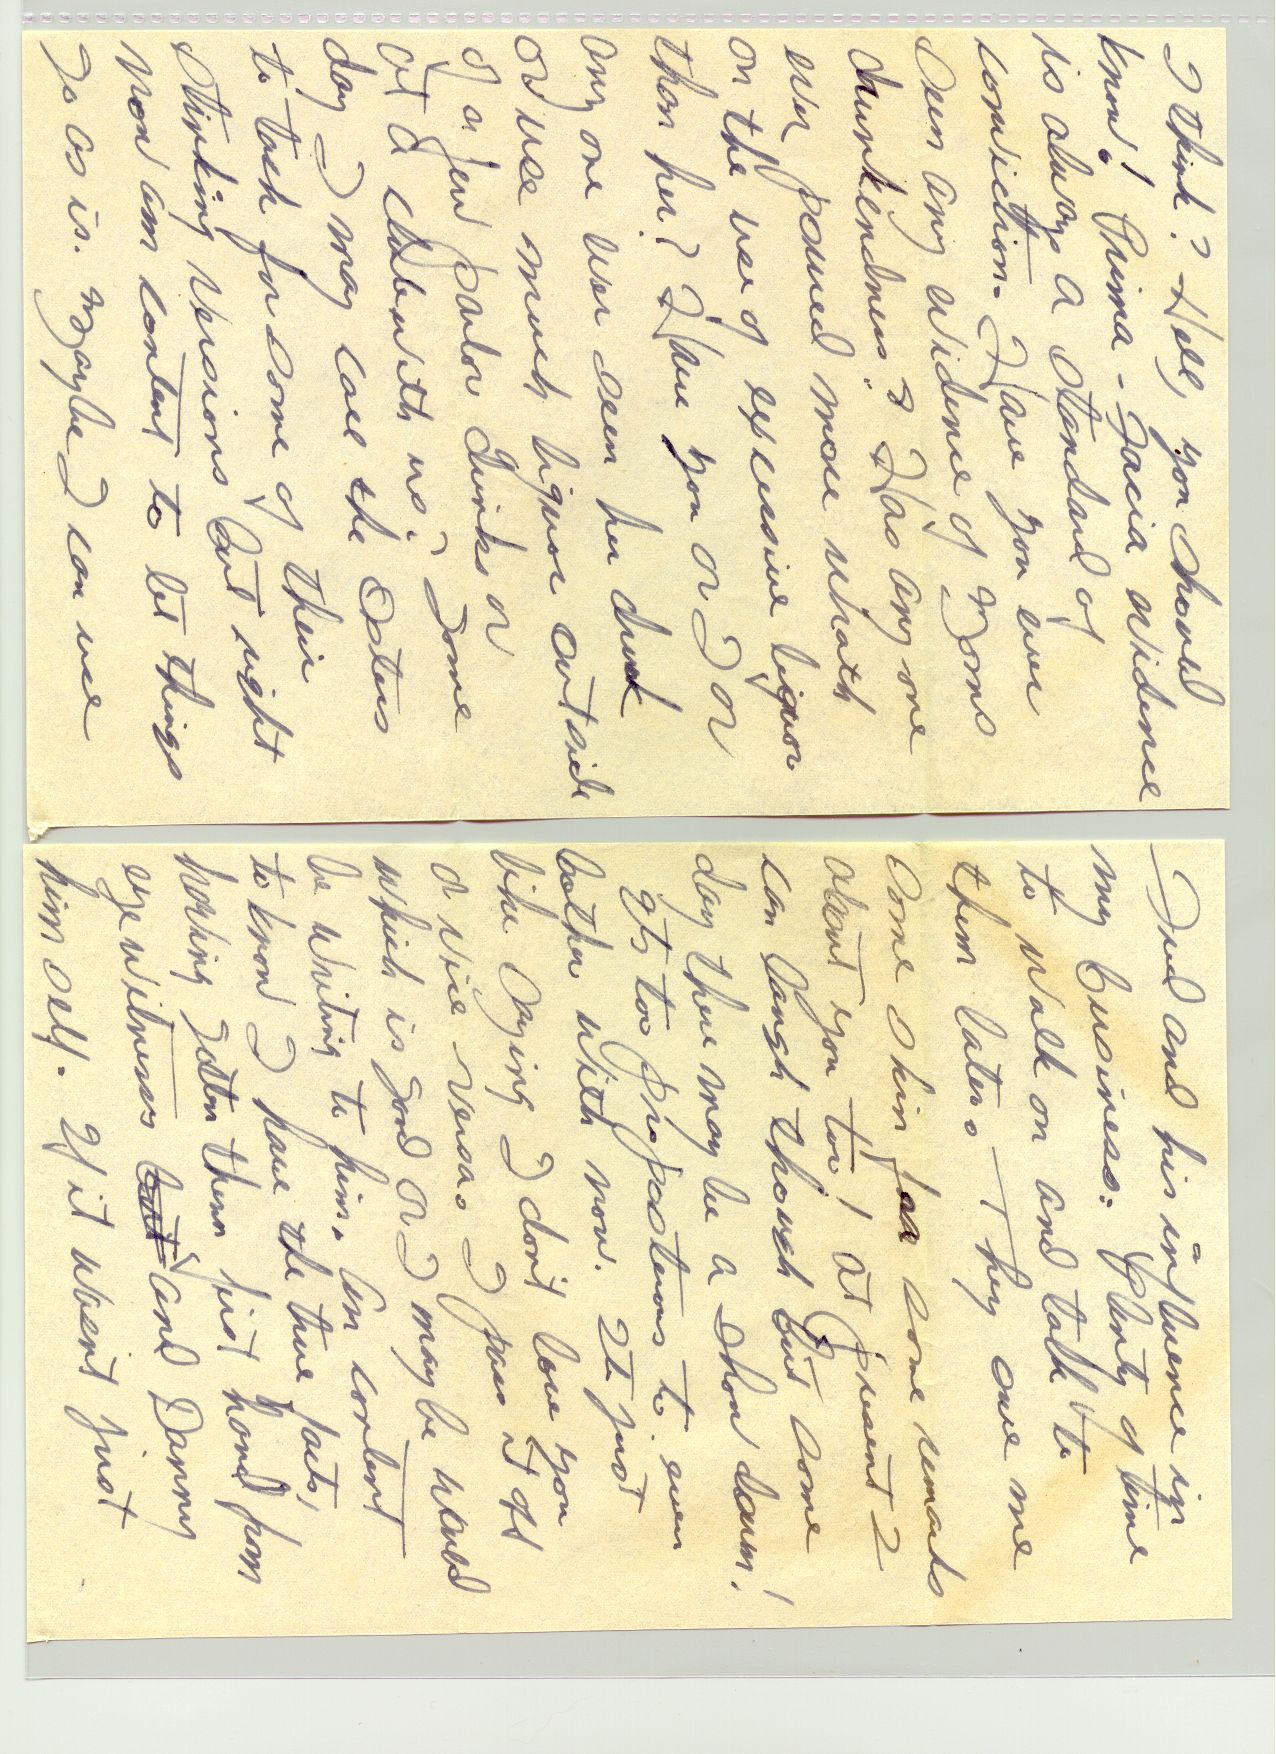 I think? Hell, you should
know! Prima-facia evidence
is always a standard of
conviction. Have you ever
seen any evidence of Moms
drunkendness? Has any one
ever poured more wrath
on the use of excessive liquor
than her? Have you or I or
any one ever seen her drunk
or use much liquor outside
of a few parlor drinks or
at a club with us? Some
day I may call the
to task for some of their
stinking versions but right
now am content to let things
go as is. Maybe I can use
Fred and his influence in
my business. Plenty of time
to walk on and talk to
them later. They owe me
some skin for some remarks
about you too! At present I
can laugh though but some
day there may be a show down!
Its too preposterous to even
bother with now. It just
like saying I don't love you
or vice versa. I pass it off
which is good or I maybe would
be writing to him. Am content
to know I have the true facts,
having gotten them first hand from
eye witness and Danny
him self. If it wasn't just